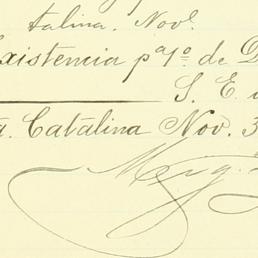 talina. Nov.
xistencia pa 1º de D
S. E. u
a. Catalina Nov. 3